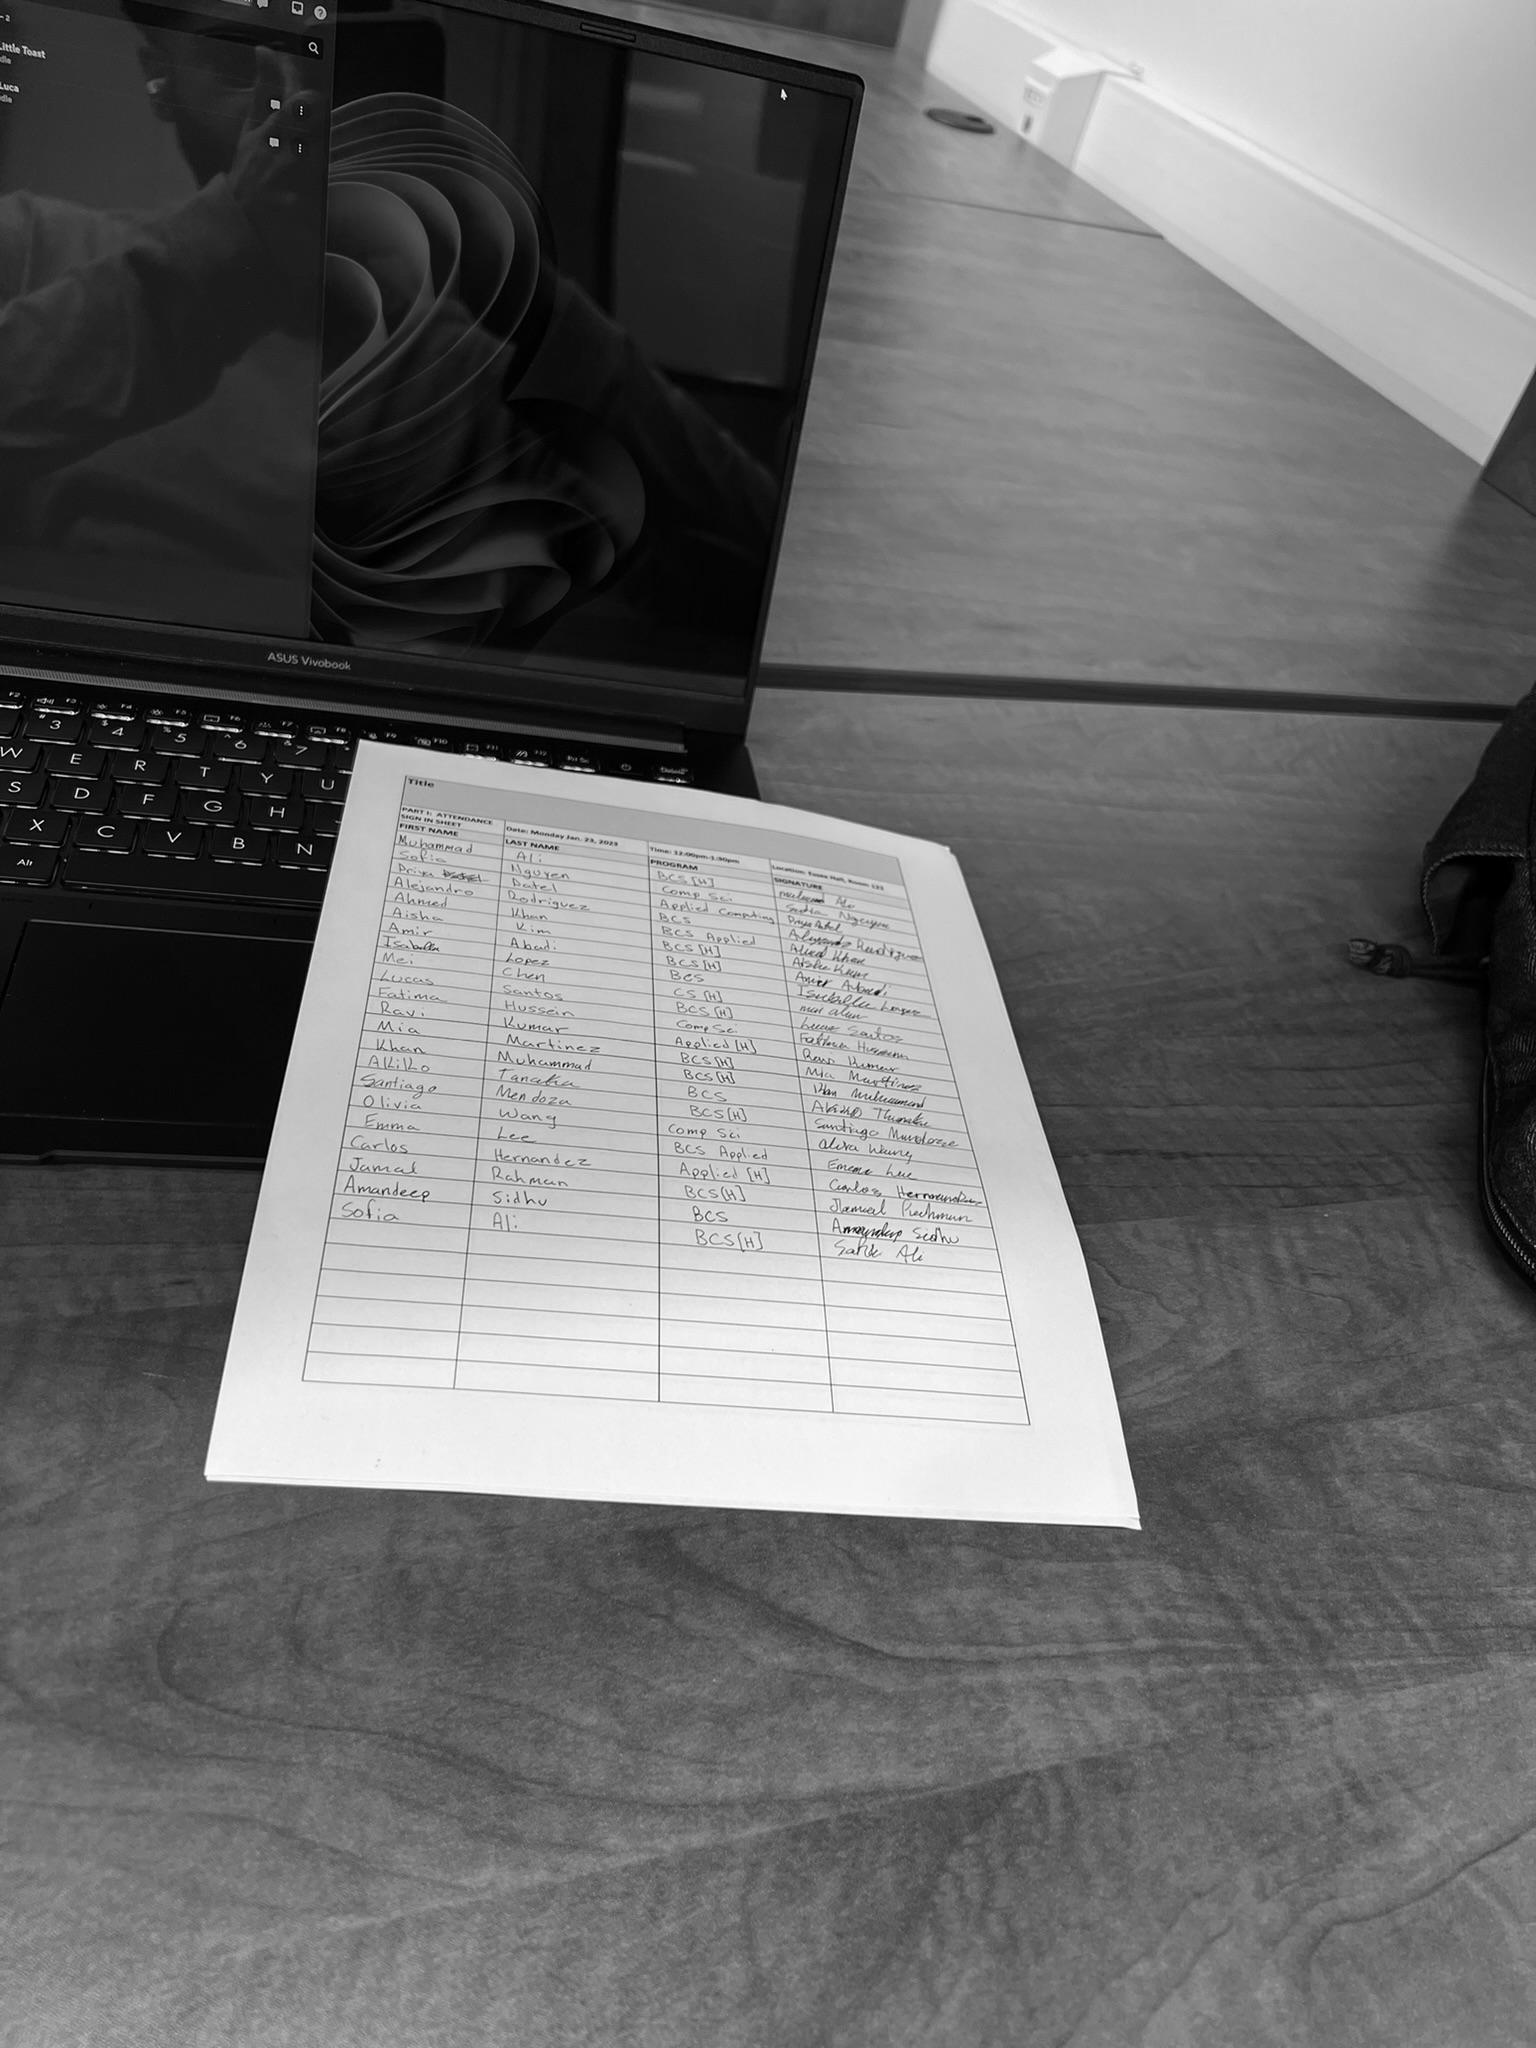 - 2
Little Toast
dle
Luca
dle
ASUS Vivobook
F2 F3 F4 F5 F6 F7 F8 F9 F10 F11 F12 Prt Sc Delete
# 3 $ 4 % 5 ^ 6 & 7
W E R T Y U
S D F G H
X C V B N
Alt
Title
PART I: ATTENDANCE SIGN IN SHEET Date: Monday Jan. 23, 2023 Time: 12:00pm-1:30pm Location: Essex Hall, Room 122
FIRST NAME LAST NAME PROGRAM SIGNATURE
Muhammad Ali BCS [H] Ali
Sofia Nguyen Comp Sci Sofia Nguyen
Priya Patel Applied Computing Priya Patel
Alejandro Rodriguez BCS Alejandro Rodriguez
Ahmed Khan BCS Applied Ahmed Khan
Aisha Kim BCS [H] Aisha Kim
Amir Abadi BCS [H] Amir Abadi
Isabella Lopez BCS Isabella Lopez
Mei Chen CS [H] Mei Chen
Lucas Santos BCS [H] Lucas Santos
Fatima Hussein Comp Sci Fatima Hussein
Ravi Kumar Applied [H] Ravi Kumar
Mia Martinez BCS [H] Mia Martinez
Khan Muhammad BCS [H] Khan Muhammad
Akiko Tanaka BCS Akiko Tanaka
Santiago Mendoza BCS [H] Santiago Mendoza
Olivia Wang Comp Sci Olivia Wang
Emma Lee BCS Applied Emma Lee
Carlos Hernandez Applied [H] Carlos Hernandez
Jamal Rahman BCS [H] Jamal Rahman
Amandeep Sidhu BCS Amandeep Sidhu
Sofia Ali BCS [H] Sofia Ali